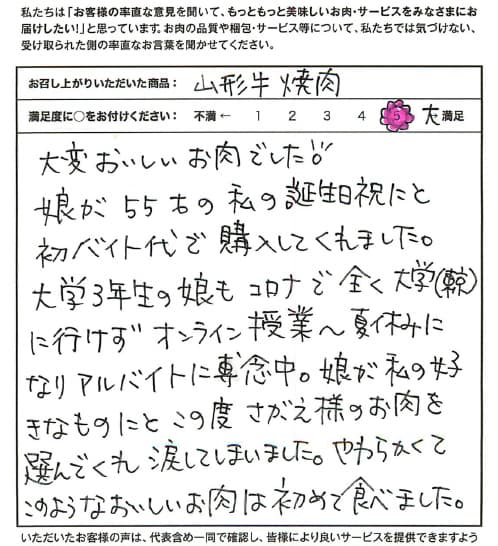 私たちは「お客様の率直な意見を聞いて、もっともっと美味しいお肉・サービスをみなさまにお
届けしたい！」と思っています。お肉の品質や梱包・サービス等について、私たちでは気づけない、
受け取られた側の率直なお言葉を聞かせてください。
お召し上がりいただいた商品： 山形牛焼肉
満足度に○をお付けください： 不満 ← 1 2 3 4 5 大満足
大変おいしいお肉でした!!
娘が55才の私の誕生日祝にと
初バイト代で購入してくれました。
大学3年生の娘もコロナで全く大学(東京)
に行けずオンライン授業〜夏休みに
なりアルバイトに専念中。娘が私の好
きなものにとこの度さがえ様のお肉を
選んでくれ涙してしまいました。やわらかくて
このようなおいしいお肉は初めて食べました。
いただいたお客様の声は、代表含め一同で確認し、皆様により良いサービスを提供できますよう